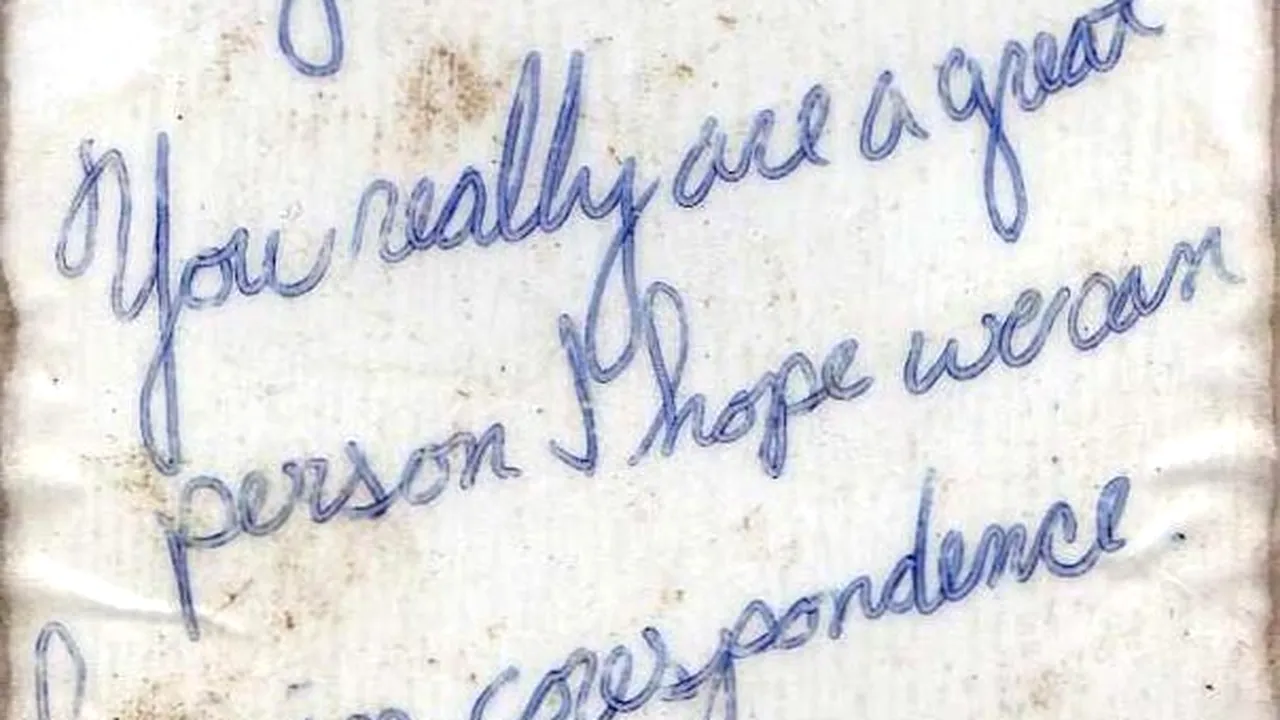 You really are a great
person I hope we can
in corespondence